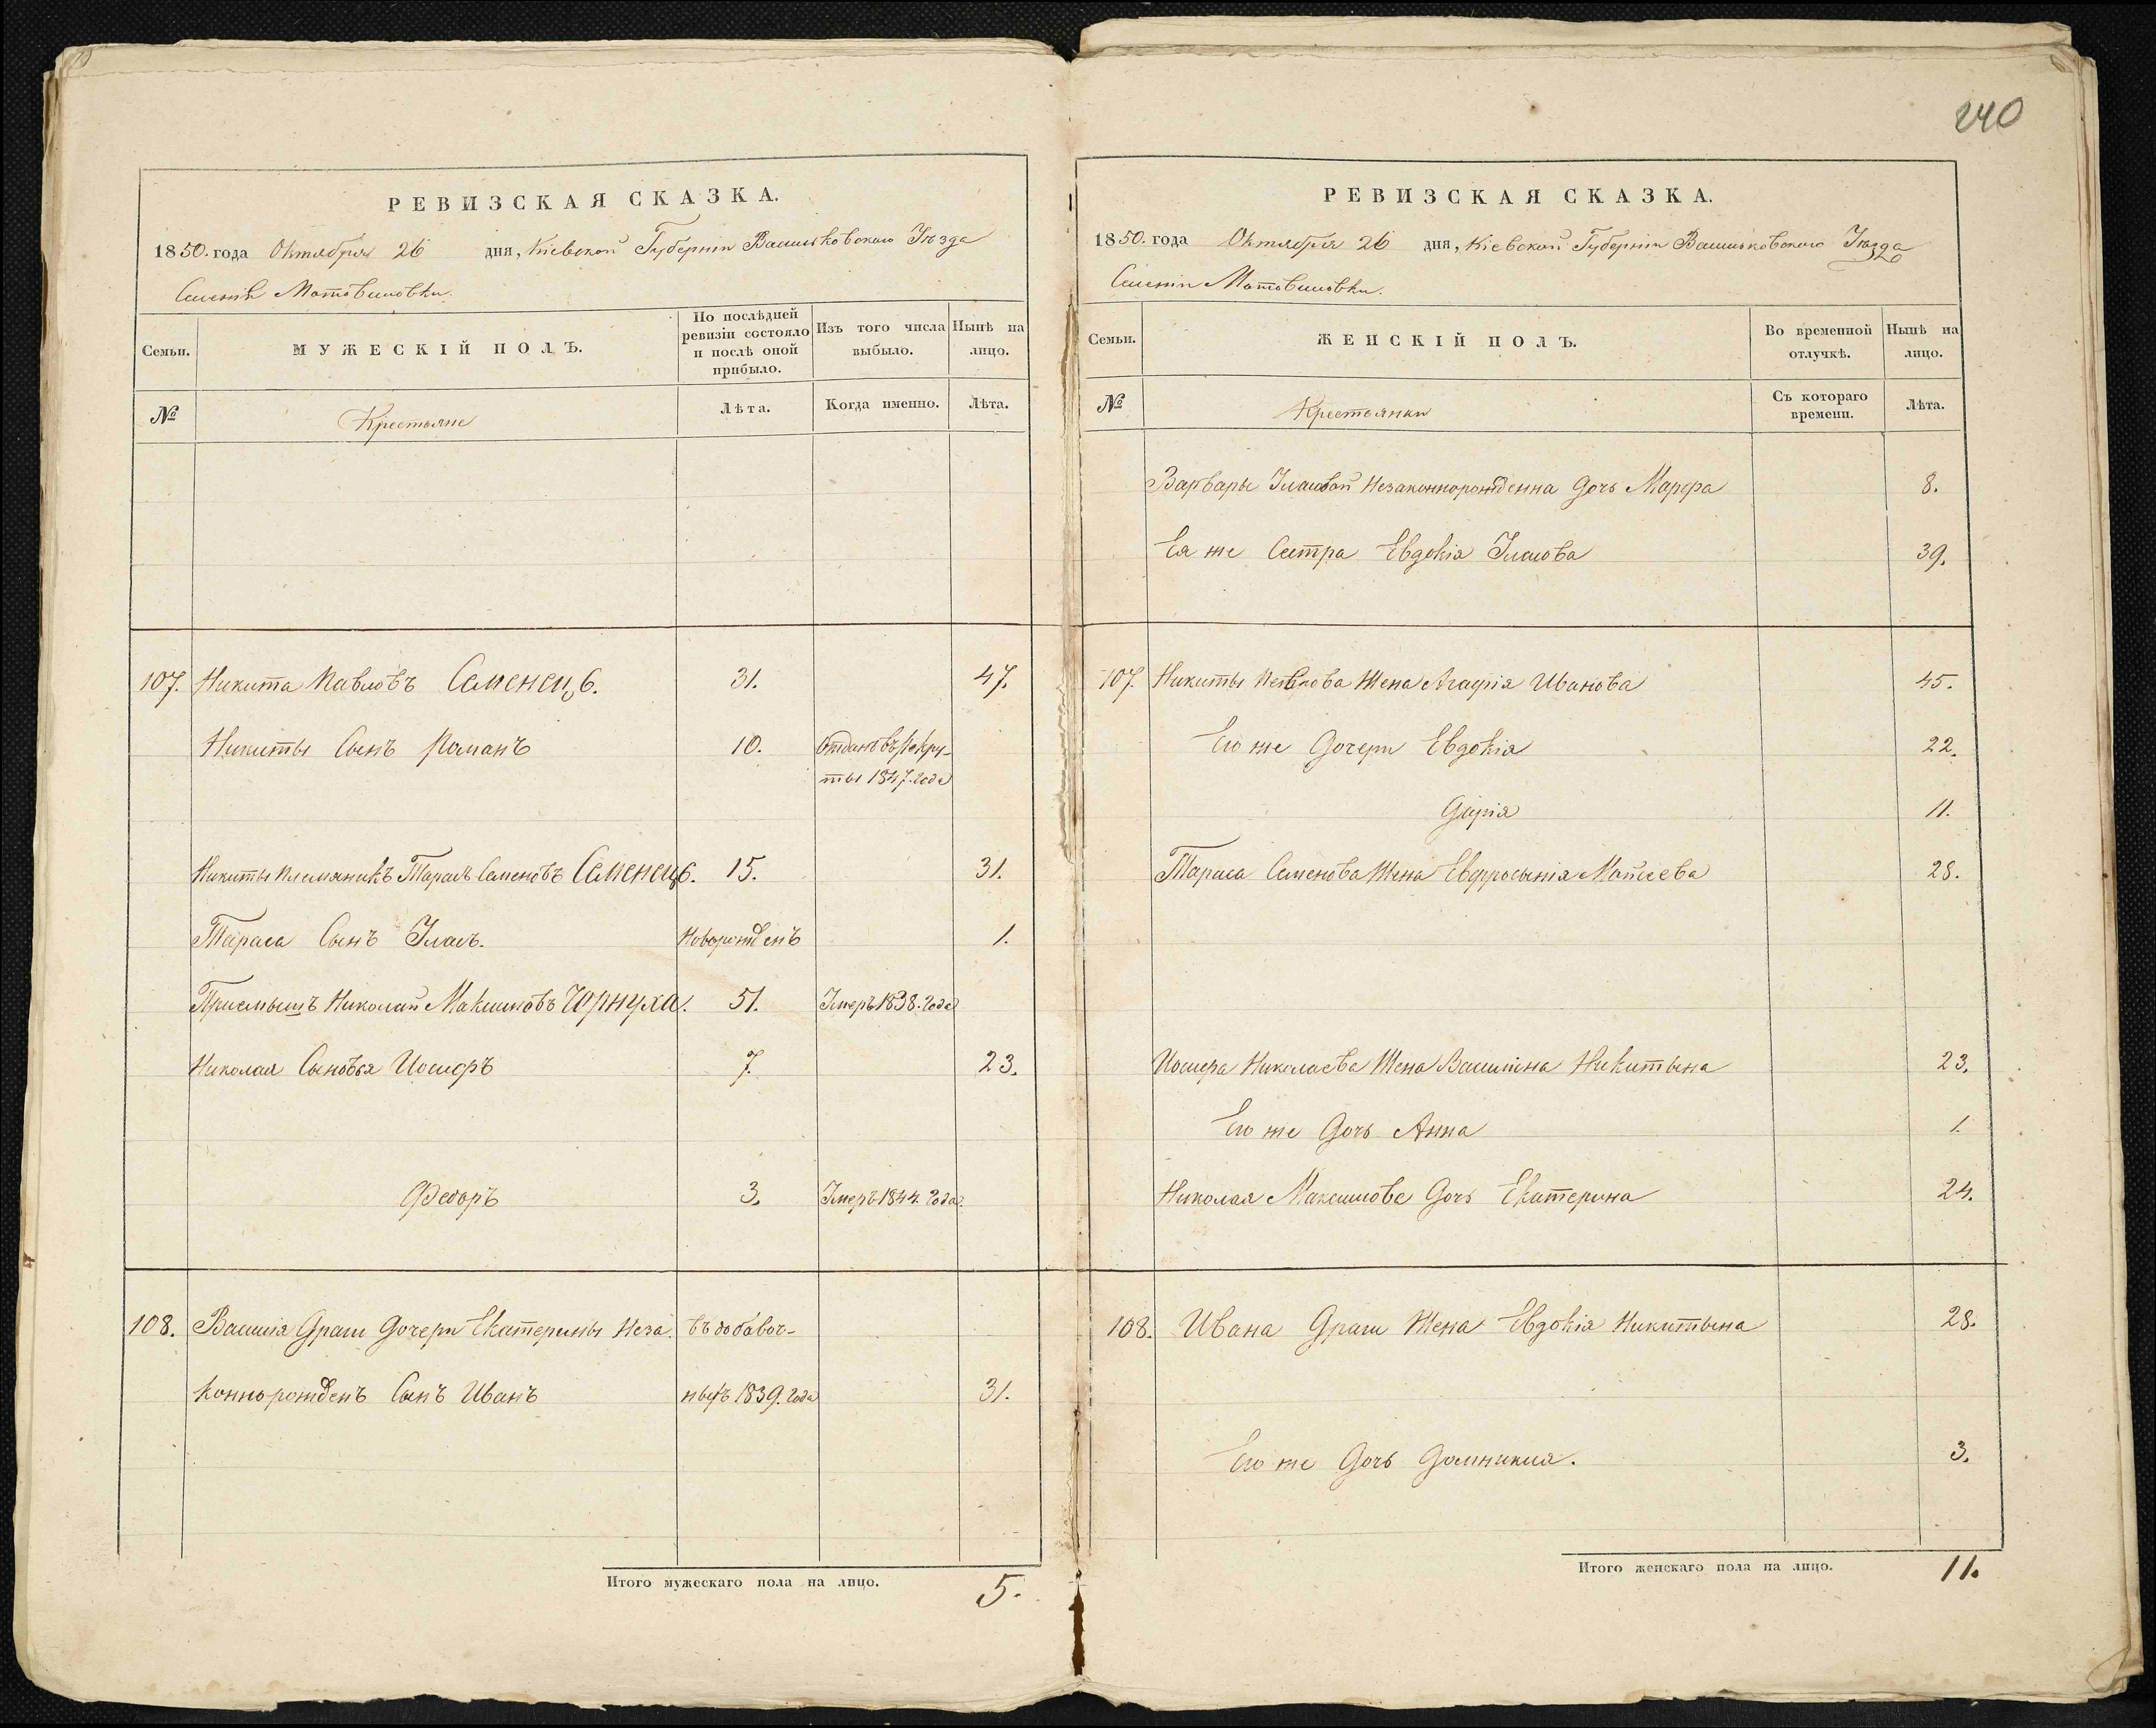 240
РЕВИЗСКАЯ СКАЗКА.
1850. года Октября 26 дня, Кіевской Губерніи Васильковскаго Уѣзда
Селенія Мотовиловки.
Семьи.
МУЖЕСКІЙ ПОЛЪ.
По послѣдней ревизіи состояло и послѣ оной прибыло.
Изъ того числа выбыло.
Нынѣ на лицо.
№
Крестьяне
Лѣта.
Когда именно.
Лѣта.
107. Никита Павловъ Семенець. 31. 47.
Никиты Сынъ Романъ 10. Отданъ въ рекру-
ты 1847. года
Никиты племяникъ Тарасъ Семеновъ Семенець. 15. 31.
Тараса Сынъ Власъ. Новорожденъ 1.
Приемышъ Николай Максимовъ Чорнуха. 51. Умеръ 1838. года
Николая Сыновья Иосифъ 7. 23.
Федоръ 3. Умеръ 1844. года.
108. Василія Драги дочери Екатерины неза въ добавоч-
коннорожденъ Сынъ Иванъ ныхъ 1839. года 31.
Итого мужескаго пола на лицо. 5.
РЕВИЗСКАЯ СКАЗКА.
1850. года Октября 26 дня, Кіевской Губерніи Васильковскаго Уѣзда
Селеніи Мотовиловки.
Семьи.
ЖЕНСКІЙ ПОЛЪ.
Во временной отлучкѣ.
Нынѣ на лицо.
№
Крестьянки
Съ котораго времени.
Лѣта.
Варвары незаконнорожденна дочь Марфа 8.
Ея же Сестра Евдокія 39.
107. Никиты Павлова Жена Агафія Иванова 45.
Его же дочери Евдокія 22.
Дарія 11.
Тараса Семенова Жена Евфросынія Мойсеева 28.
Иосифа Николаева Жена Василина Никитына 23.
Его же дочь Анна 1.
Николая Максимова дочь Екатерина 24.
108. Ивана Драги Жена Евдокія Никитына 28.
Его же дочь Домникия. 3.
Итого женскаго пола на лицо. 11.